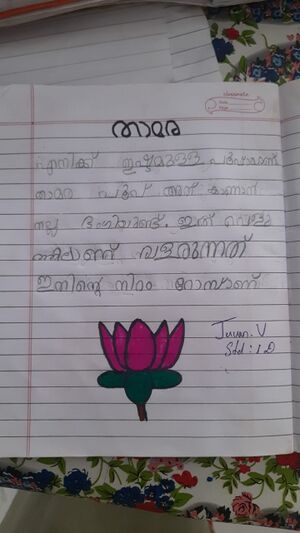 classmate
Date
Page
താമര
എനിക്ക് ഇഷ്ടമുള്ള പുഷ്പമാണ്
താമര പൂവ് അത് കാണാൻ
നല്ല ഭംഗിയുണ്ട്. ഇത് വെള്ള
ത്തിലാണ് വളരുന്നത്
ഇതിന്റെ നിറം റോസാണ്
V
Std : 1 D